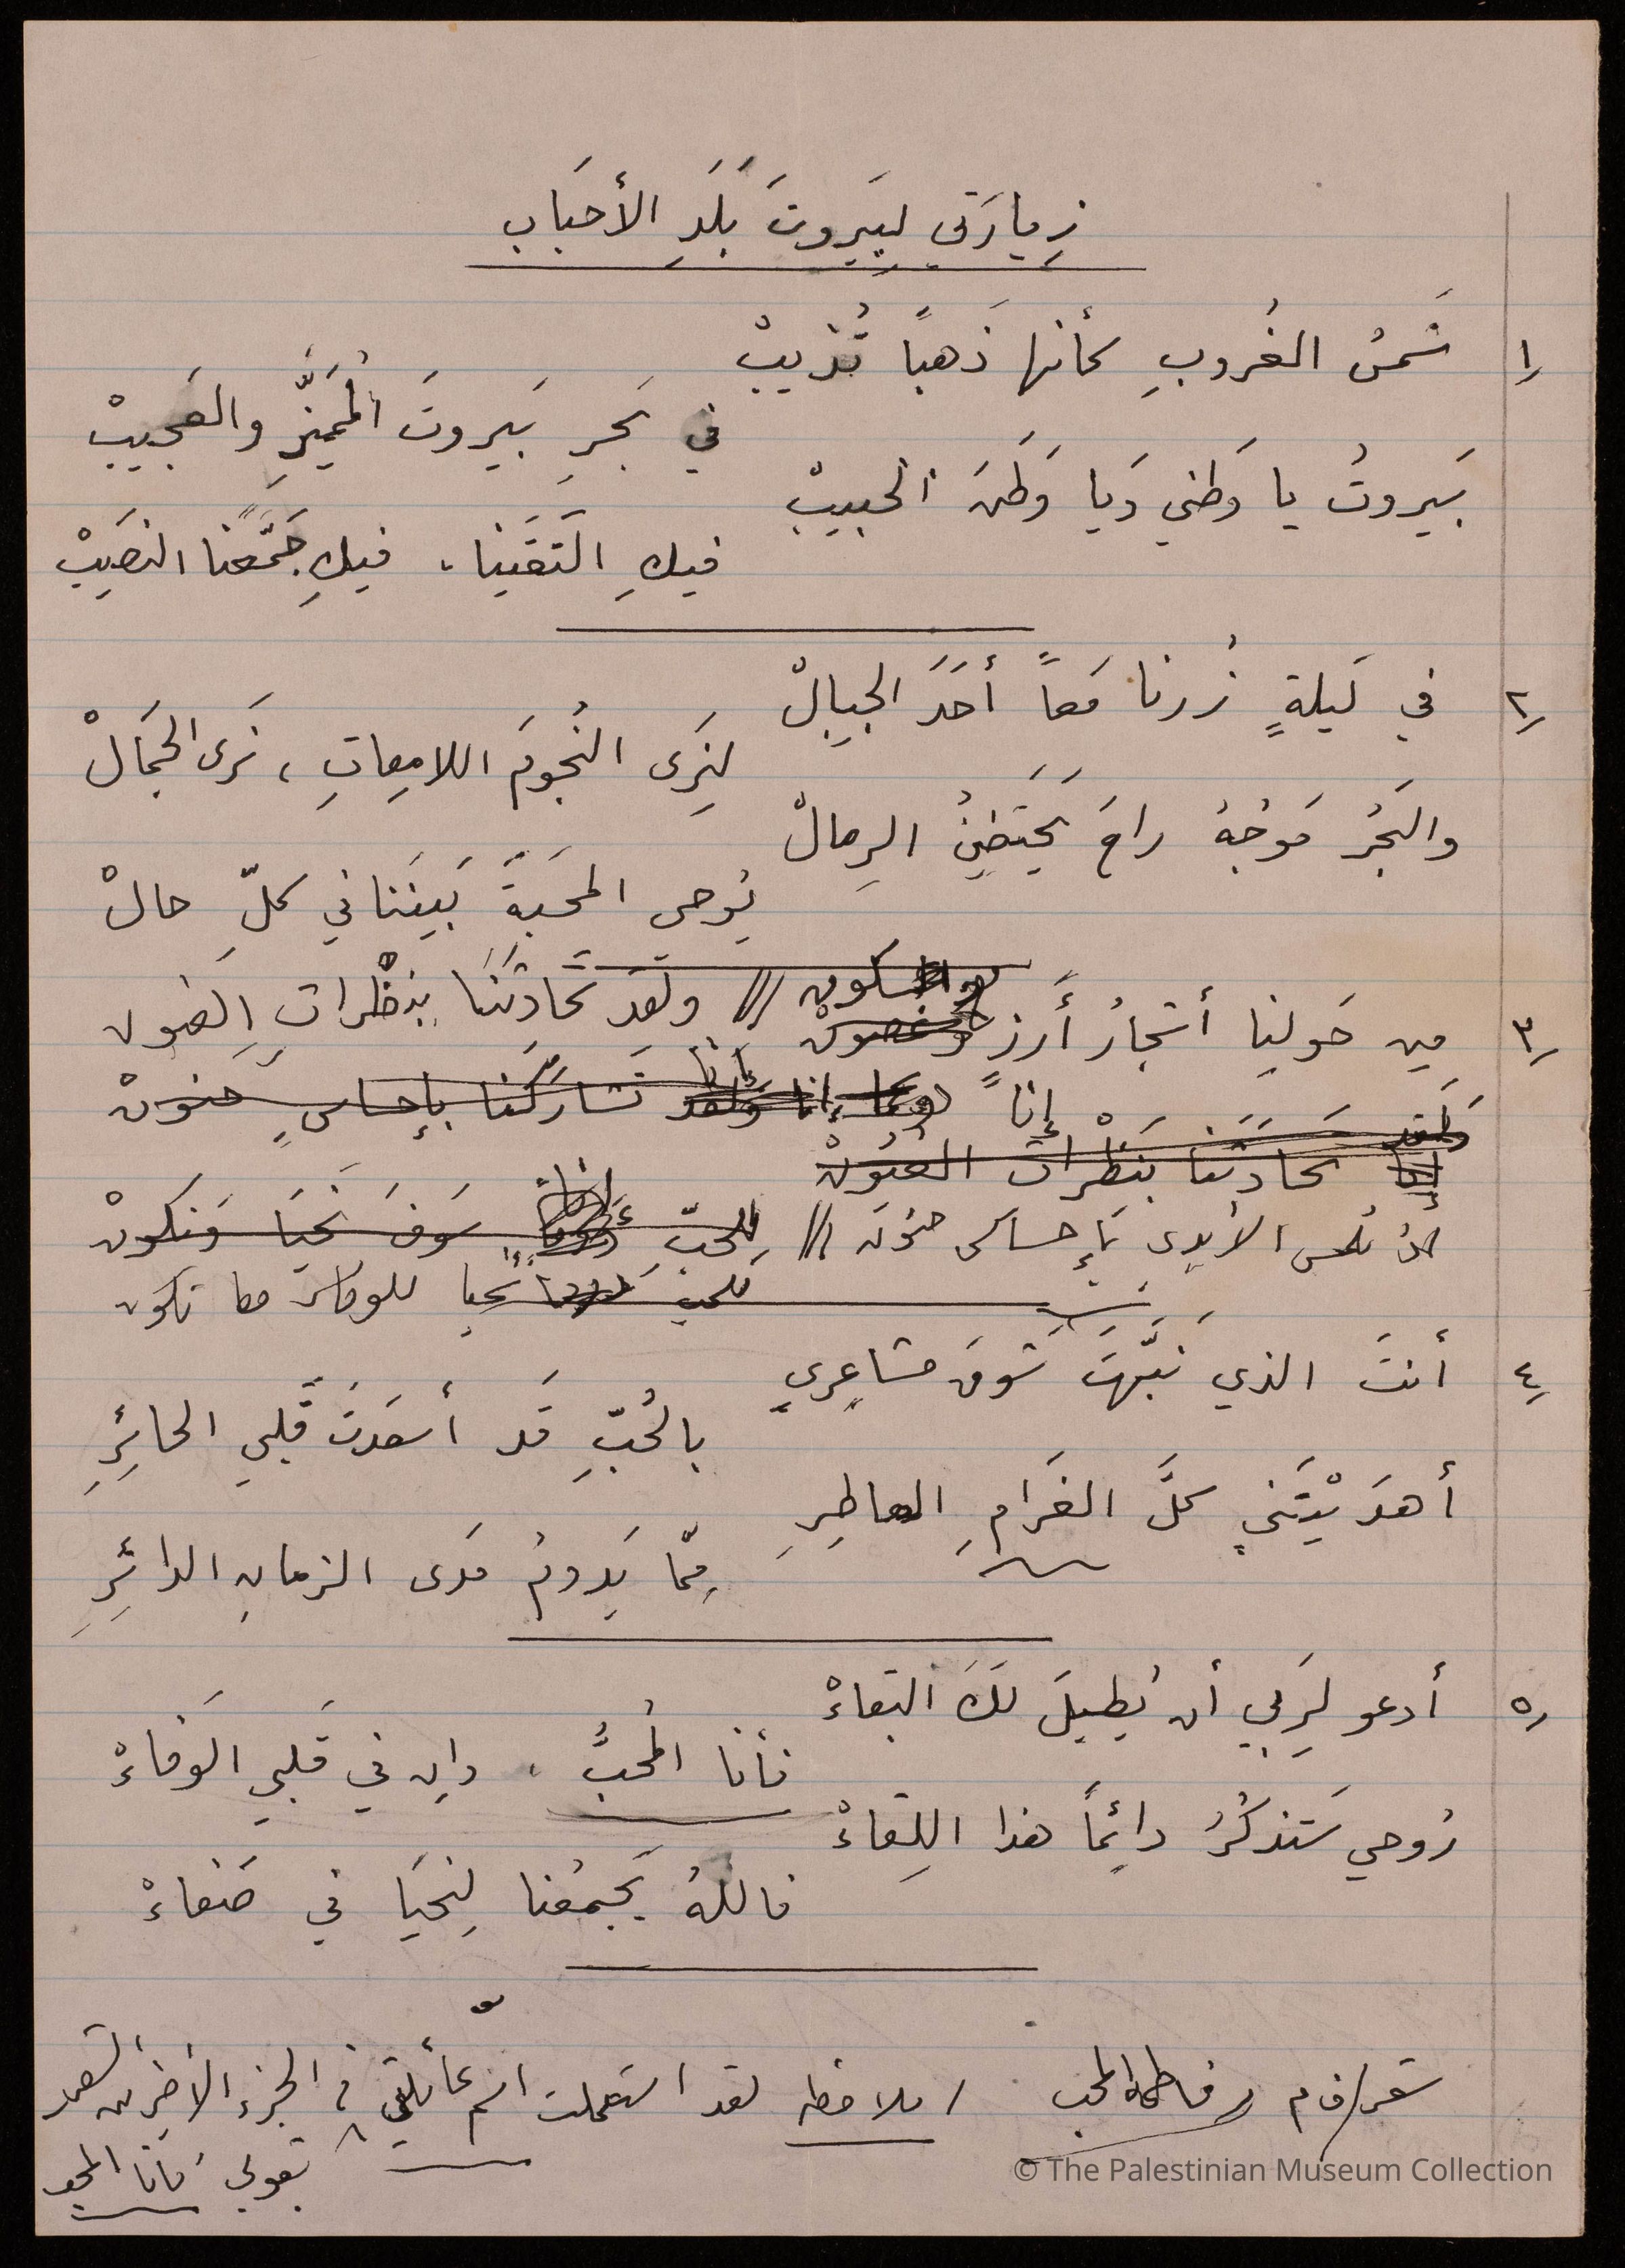 زِيارَتي لبَيروتَ بَلَدِ الأحبَاب
١/ شَمسُ الغُروبِ كأنها ذَهباً تُذيبْ
في بَحرِ بَيروتَ المُمَيَّزِ والعَجيبْ
بَيروتُ يا وَطني وَيا وَطَنَ الحبيبْ
فيكِ التَقَينا، فيكِ جَمَّعَنا النصَيِبْ
٢/ في لَيلةٍ زُرنا مَعاً أحَدَ الجبِالْ
لِنَرَى النُجومَ اللامِعاتِ، نَرى الجَمَالْ
والبَحرُ مَوجُهُ راحَ يَحتَضِنُ الرِمالْ
يُوحى المحَبةَ بَينَنا في كلِّ حالْ
٣/ مِن حَولِنا أشجارُ أَرزٍ والسكون // ولقد تحَادثنَا بنظْراتِ العيون
وغصونْ
إنا وَلقد تشَارَكنا بإحساسٍ حنونْ
لقد تحَادَثنا بنَظْراتِ العيُونْ
لمس الأيدِي بإحساس حنونَ // لِلحبِّ سَوفَ نَحيَا وَنكونْ
للحب نحيا للوفاء كما نكون
٤/ أنتَ الذي نَبَّهتَ شَوقَ مشاعِري
بالحُبِّ قَد أسعَدتَ قَلبي الحائِرِ
أهدَيْتَني كلَّ الغَرامِ العاطِرِ
مِمّا يَدومُ مَدى الزمانِ الدائِرِ
٥/ أدعو لِرَبي أن يُطيلَ لَكَ البَقاءْ
فأنا المُحبُّ، وإن في قَلبي الوَفاءْ
رُوحي ستَذكُرُ دائِماً هذا اللِقاءْ
فاللهُ يَجمعُنا لِنَحيَا في صَنعاءْ
شعر / فاطمة المحب / ملاحظه لقد استعملت اسم عائلتي في الجزء الأخير من القصيد
بقولي فأنا المحب
© The Palestinian Museum Collection